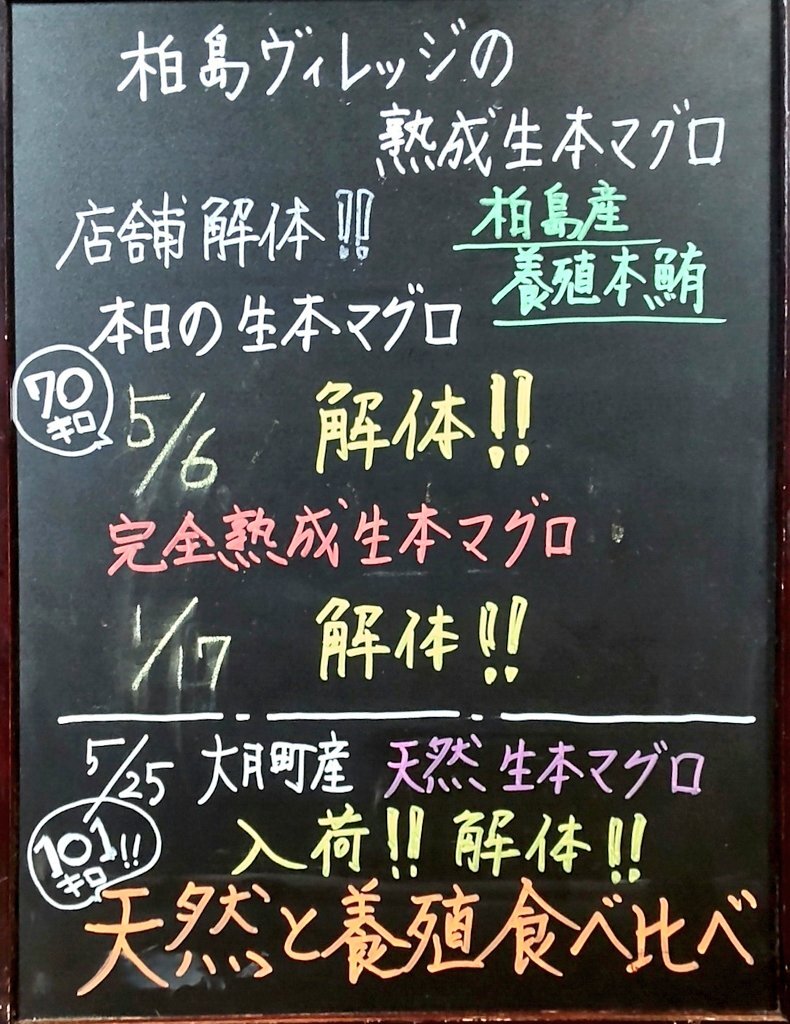 柏島ヴィレッジの
熟成生本マグロ
店舗解体!!
柏島産
養殖本鮪
本日の生本マグロ
70
キロ
5/6 解体!!
完全熟成生本マグロ
1/17 解体!!
5/25 大月町産 天然生本マグロ
101!!
キロ
入荷!! 解体!!
天然と養殖食べ比べ